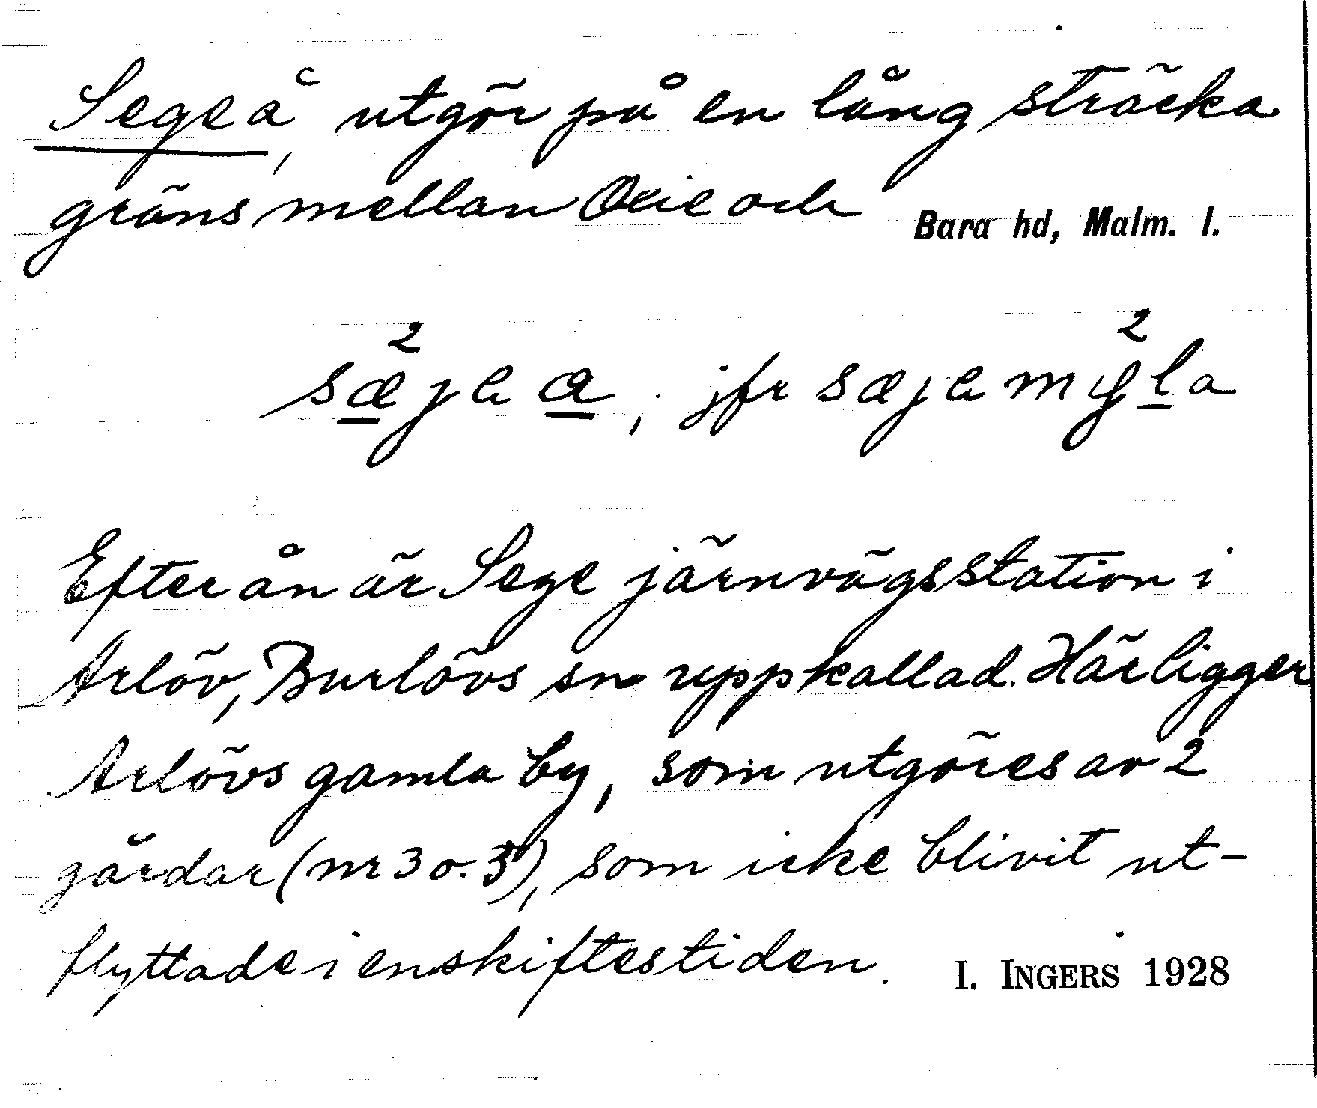 Sege å, utgör på en lång sträcka
gräns mellan Oxie och Bara hd, Malm. l.
sæ²jea, jfr sæjemy²la
Efter ån är Sege järnvägsstation i
Arlöv, Burlövs sn uppkallad. Här ligger
Arlövs gamla by, som utgöres av 2
gårdar (nr 3 o. 5), som icke blivit ut-
flyttade i enskiftestiden. I. INGERS 1928